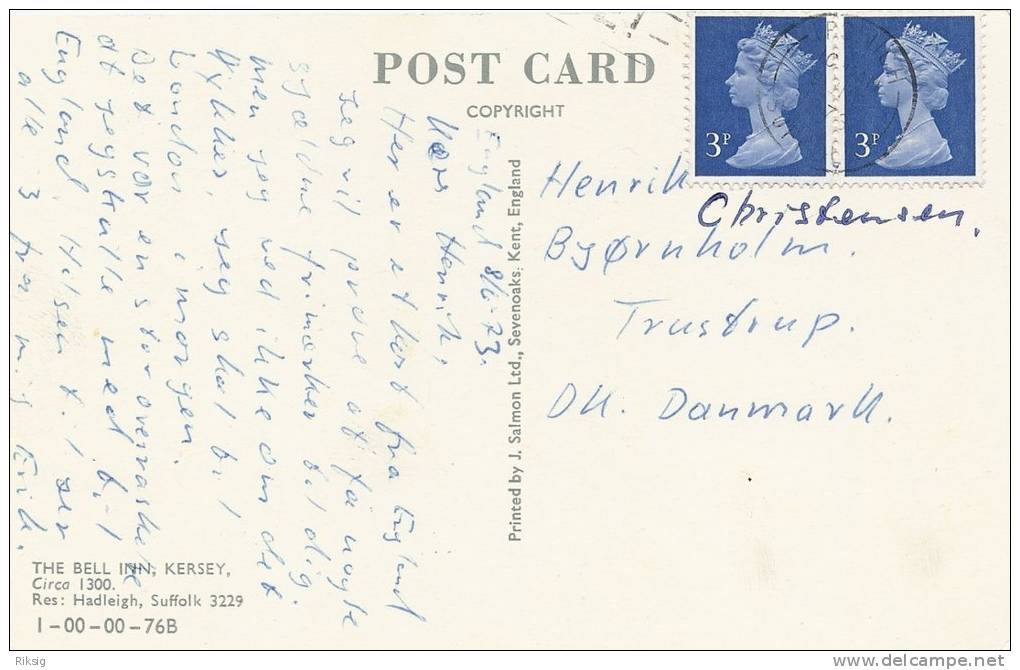 POST CARD
COPYRIGHT
3P
3P
England 8/6-73.
Kære Henrik,
Her er et kort fra England
Jeg vil prøve at få nogle
sjældne frimærker til dig.
Men jeg ved ikke om det
lykkes, jeg skal til
London i morgen.
Det var en stor overraskelse
at jeg skulle med til
England. Hilsen til jer
alle 3 fra mig Erik.
Henrik
Christensen.
Bjørnholm.
Trustrup.
DK. Danmark.
Printed by J. Salmon Ltd., Sevenoaks, Kent, England
THE BELL INN, KERSEY,
Circa 1300.
Res: Hadleigh, Suffolk 3229
1-00-00-76B
Riksig
www.delcampe.net